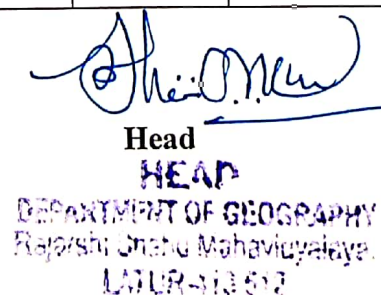 Head
HEAD
DEPARTMENT OF GEOGRAPHY
Rajarshi Shahu Mahavidyalaya,
LATUR-413 512